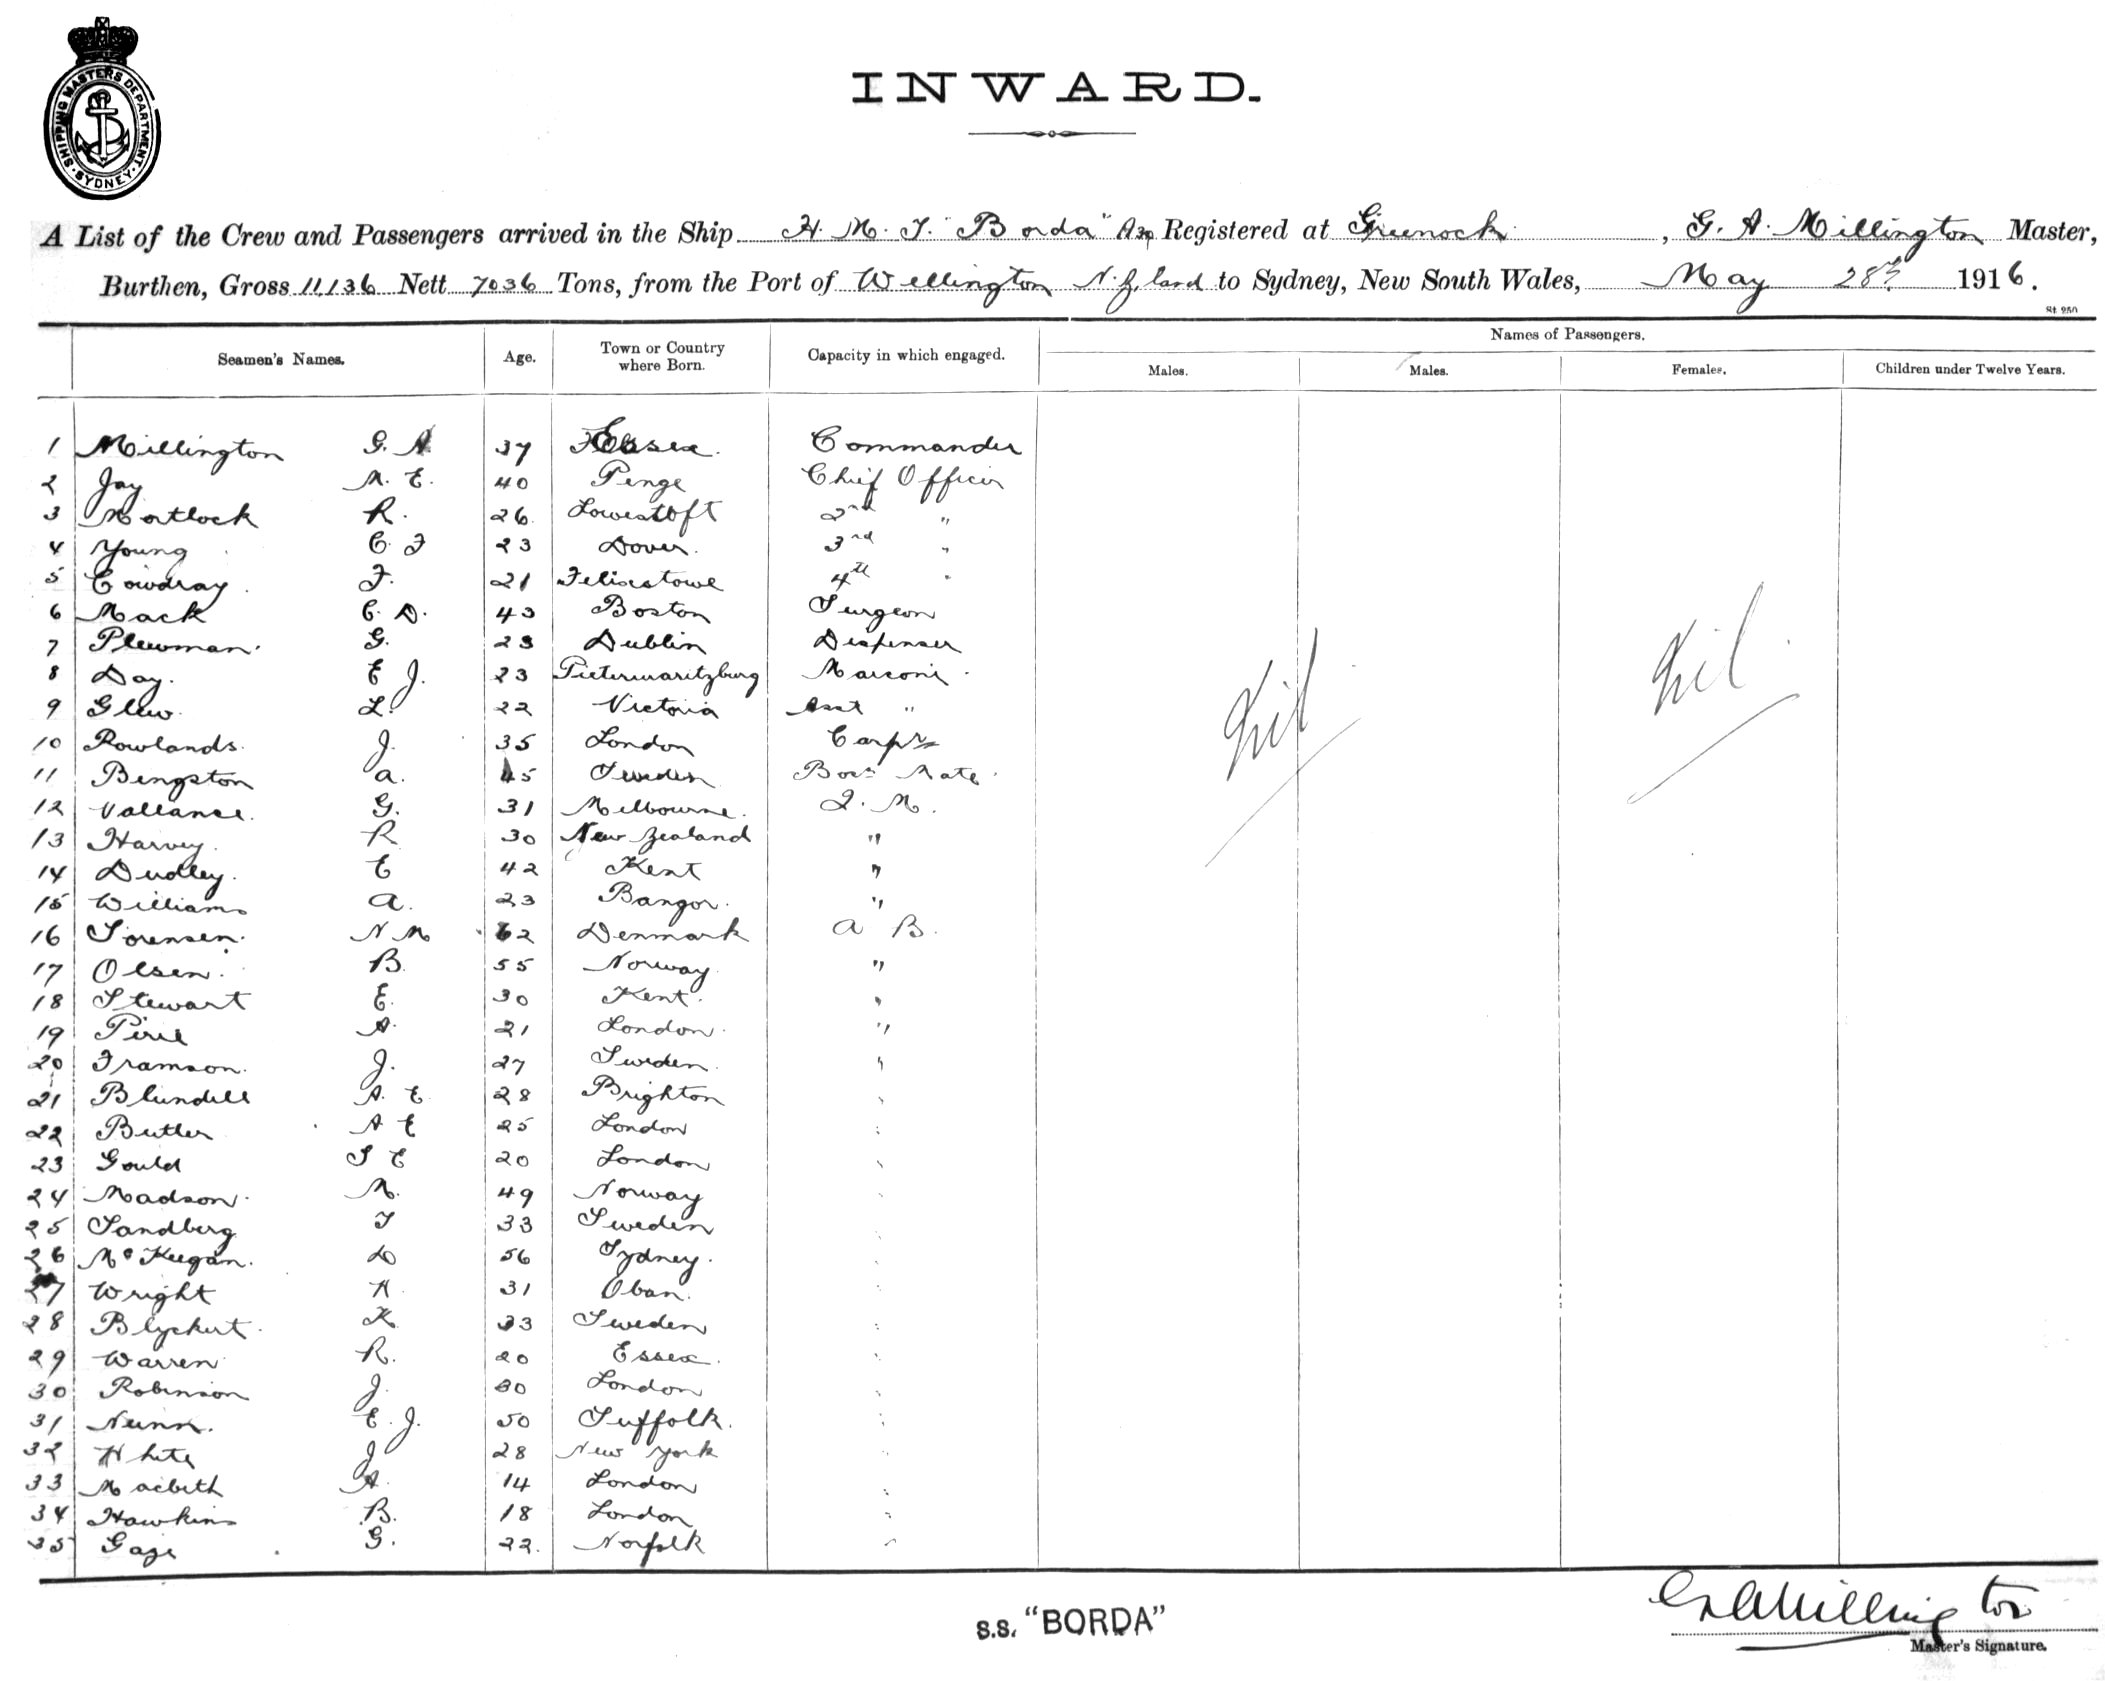 SHIPPING MASTERS DEPARTMENT · SYDNEY ·
INWARD.
A List of the Crew and Passengers arrived in the Ship H. M. T. "Borda" Registered at Greenock, G. A. Millington Master,
Burthen, Gross 11,136 Nett 7036 Tons, from the Port of Wellington N. Z, land to Sydney, New South Wales, May 28th 1916.
Seamen's Names. Age. Town or Country where Born. Capacity in which engaged. Names of Passengers.
Males. Males. Females. Children under Twelve Years.
1 Millington G. A 37 Essex. Commander
2 Jay M. E. 40 Penge Chief Officer
3 Matlock R. 26. Lowestoft 2nd "
4 Young C. F 23 Dover. 3rd "
5 Cowdray. F. 21 Felixstowe 4th "
6 Mack C. D. 43 Boston Surgeon
7 Plewman. G. 23 Dublin Dispenser
8 Day. E J. 23 Pietermaritzburg Marconi.
9 Glew. L. 22 Victoria Asst "
10 Rowlands. J. 35 London Carpr
11 Bengston a. 45 Sweden Bosns Mate.
12 Vallance. G. 31 Melbourne. Q. M.
13 Harvey. R 30 New Zealand "
14 Dudley. E 42 Kent "
15 Williams a. 23 Bangor. "
16 Sorensen. N M 62 Denmark a B.
17 Olsen. B. 55 Norway "
18 Stewart E. 30 Kent. "
19 Pirie A. 21 London. "
20 Framson. J. 27 Sweden. "
21 Blundell A. E 28 Brighton "
22 Butler A E 25 London "
23 Gould S E 20 London "
24 Madson. M. 49 Norway "
25 Sandberg T 33 Sweden "
26 McKeegan. D 56 Sydney. "
27 Wright H 31 Oban. "
28 Blyckert. K. 33 Sweden "
29 Warren R. 20 Essex. "
30 Robinson J. 30 London "
31 Nunn. E. J. 50 Suffolk. "
32 White J 28 New York "
33 Macbeth A. 14 London "
34 Hawkins B. 18 London "
35 Gage G. 22. Norfolk "
Nil
Nil
S.S. "BORDA"
G A Millington
Master's Signature.